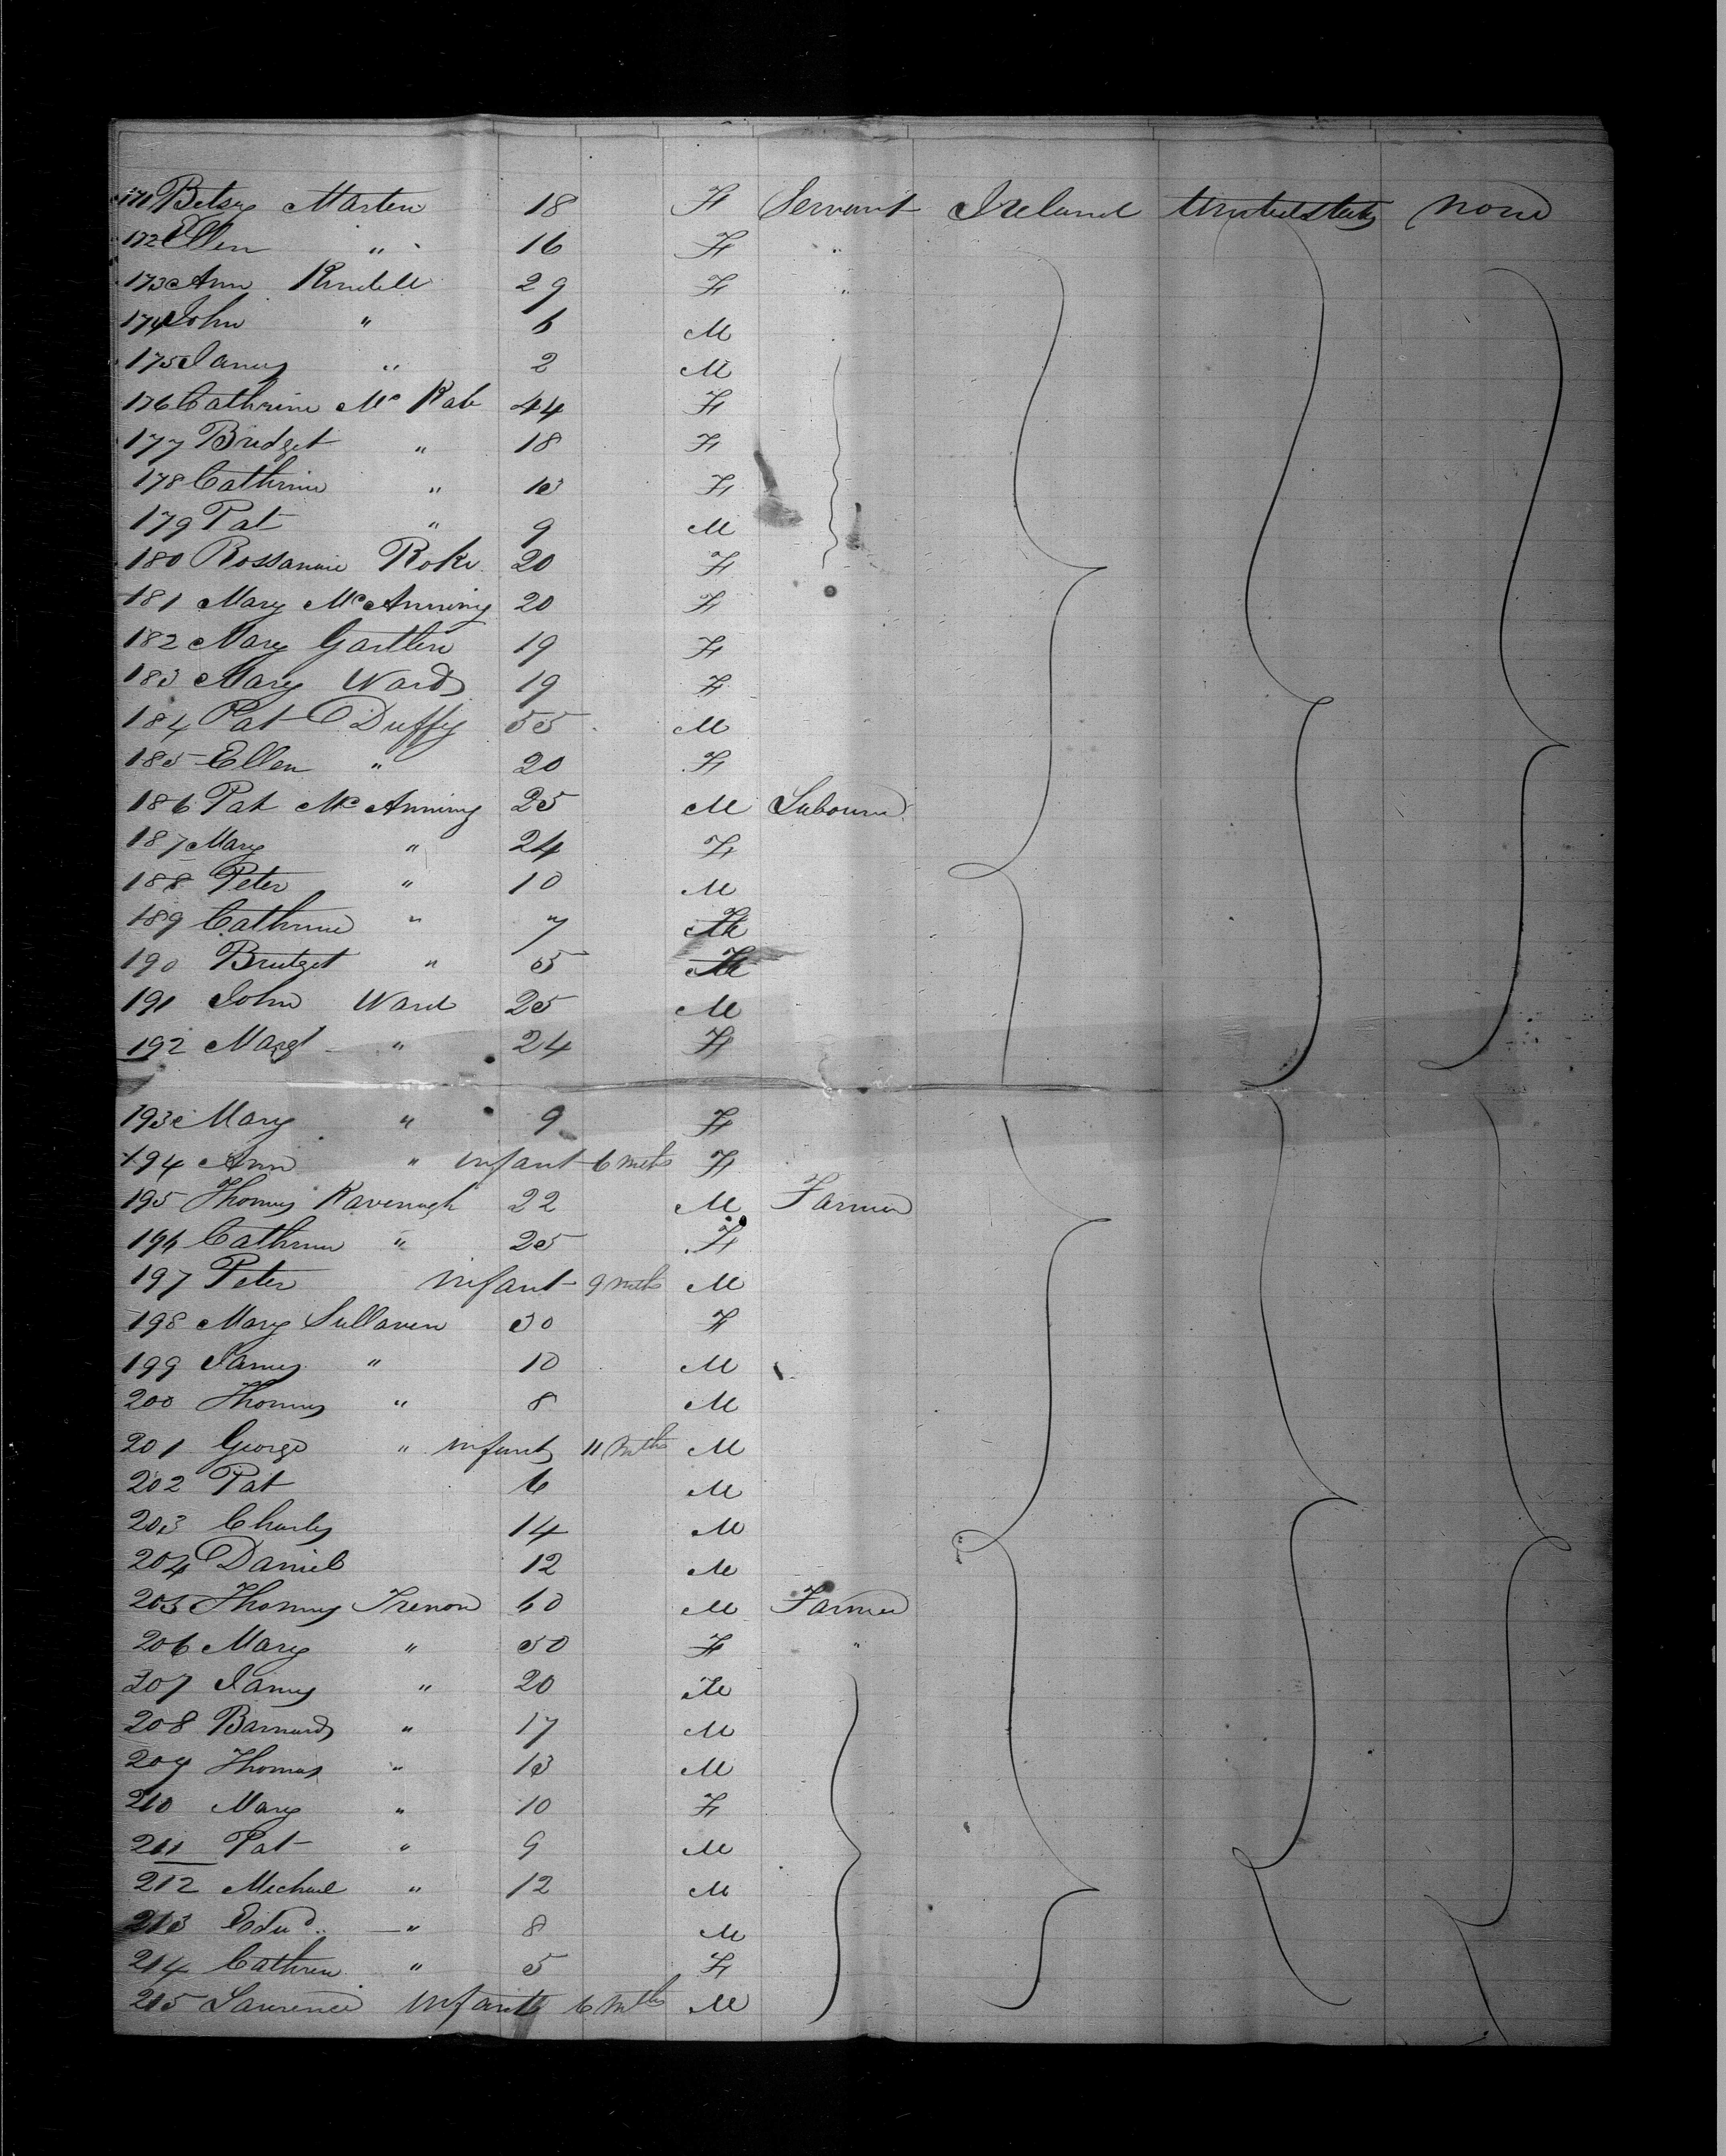 171 Betsy Marten 18 F Servant Ireland United States none
172 Ellen " 16 F "
173 Ann 29 F "
174 John " 6 M
175 James " 2 M
176 Cathrine Mc Kab 44 F
177 Bridget " 18 F
178 Cathrine " 13 F
179 Pat " 9 M
180 Rossannie Roke 20 F
181 Mary McAnniny 20 F
182 Mary Gartlin 19 F
183 Mary Ward 19 F
184 Pat Duffy 55 M
185 Ellen " 20 F
186 Pat Mc Anniny 25 M Labourer
187 Mary " 24 F
188 Peter " 10 M
189 Cathrine " 7 F
190 Bridget " 5 F
191 John Ward 25 M
192 Margt " 24 F
193 Mary " 9 F
194 Ann " infant 6 mths F
195 Thomas Kavenagh 22 M Farmer
196 Cathrine " 25 F
197 Peter infant 9 mths M
198 Mary Sullaven 30 F
199 James " 10 M
200 Thomas " 8 M
201 George " infant 11 mths M
202 Pat 6 M
203 Charles 14 M
204 Daniel 12 M
205 Thomas Trenon 60 M Farmer
206 Mary " 50 F "
207 James " 20 M
208 Barnard " 17 M
209 Thomas " 13 M
210 Mary " 10 F
211 Pat " 9 M
212 Michael " 12 M
213 Edwd " 8 M
214 Cathren " 5 F
215 Laurence infant 6 mths M